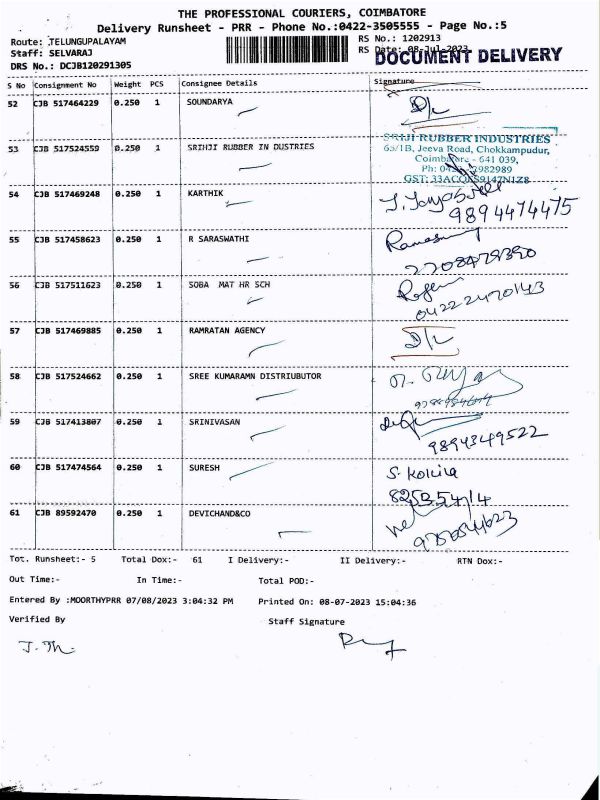 THE PROFESSIONAL COURIERS, COIMBATORE
Delivery Runsheet - PRR - Phone No.:0422-3505555 - Page No.:5
Route: TELUNGUPALAYAM
RS No.: 1202913
Staff: SELVARAJ
RS Date: 08-Jul-2023
DOCUMENT DELIVERY
DRS No.: DCJB120291305
S No Consignment No Weight PCS Consignee Details Signature
52 CJB 517464229 0.250 1 SOUNDARYA D/L
53 CJB 517524559 0.250 1 SRIHJI RUBBER IN DUSTRIES
SRIJI RUBBER INDUSTRIES
65/1B, Jeeva Road, Chokkampudur,
Coimbatore - 641 039,
54 CJB 517469248 0.250 1 KARTHIK
9894474475
55 CJB 517458623 0.250 1 R SARASWATHI
56 CJB 517511623 0.250 1 SOBA MAT HR SCH
0422 2470143
57 CJB 517469885 0.250 1 RAMRATAN AGENCY D/L
58 CJB 517524662 0.250 1 SREE KUMARAMN DISTRIUBUTOR
59 CJB 517413807 0.250 1 SRINIVASAN
9894349522
60 CJB 517474564 0.250 1 SURESH S. Kokila
61 CJB 89592470 0.250 1 DEVICHAND&CO
Tot. Runsheet:- 5 Total Dox:- 61 I Delivery:- II Delivery:- RTN Dox:-
Out Time:- In Time:- Total POD:-
Entered By :MOORTHYPRR 07/08/2023 3:04:32 PM Printed On: 08-07-2023 15:04:36
Verified By Staff Signature